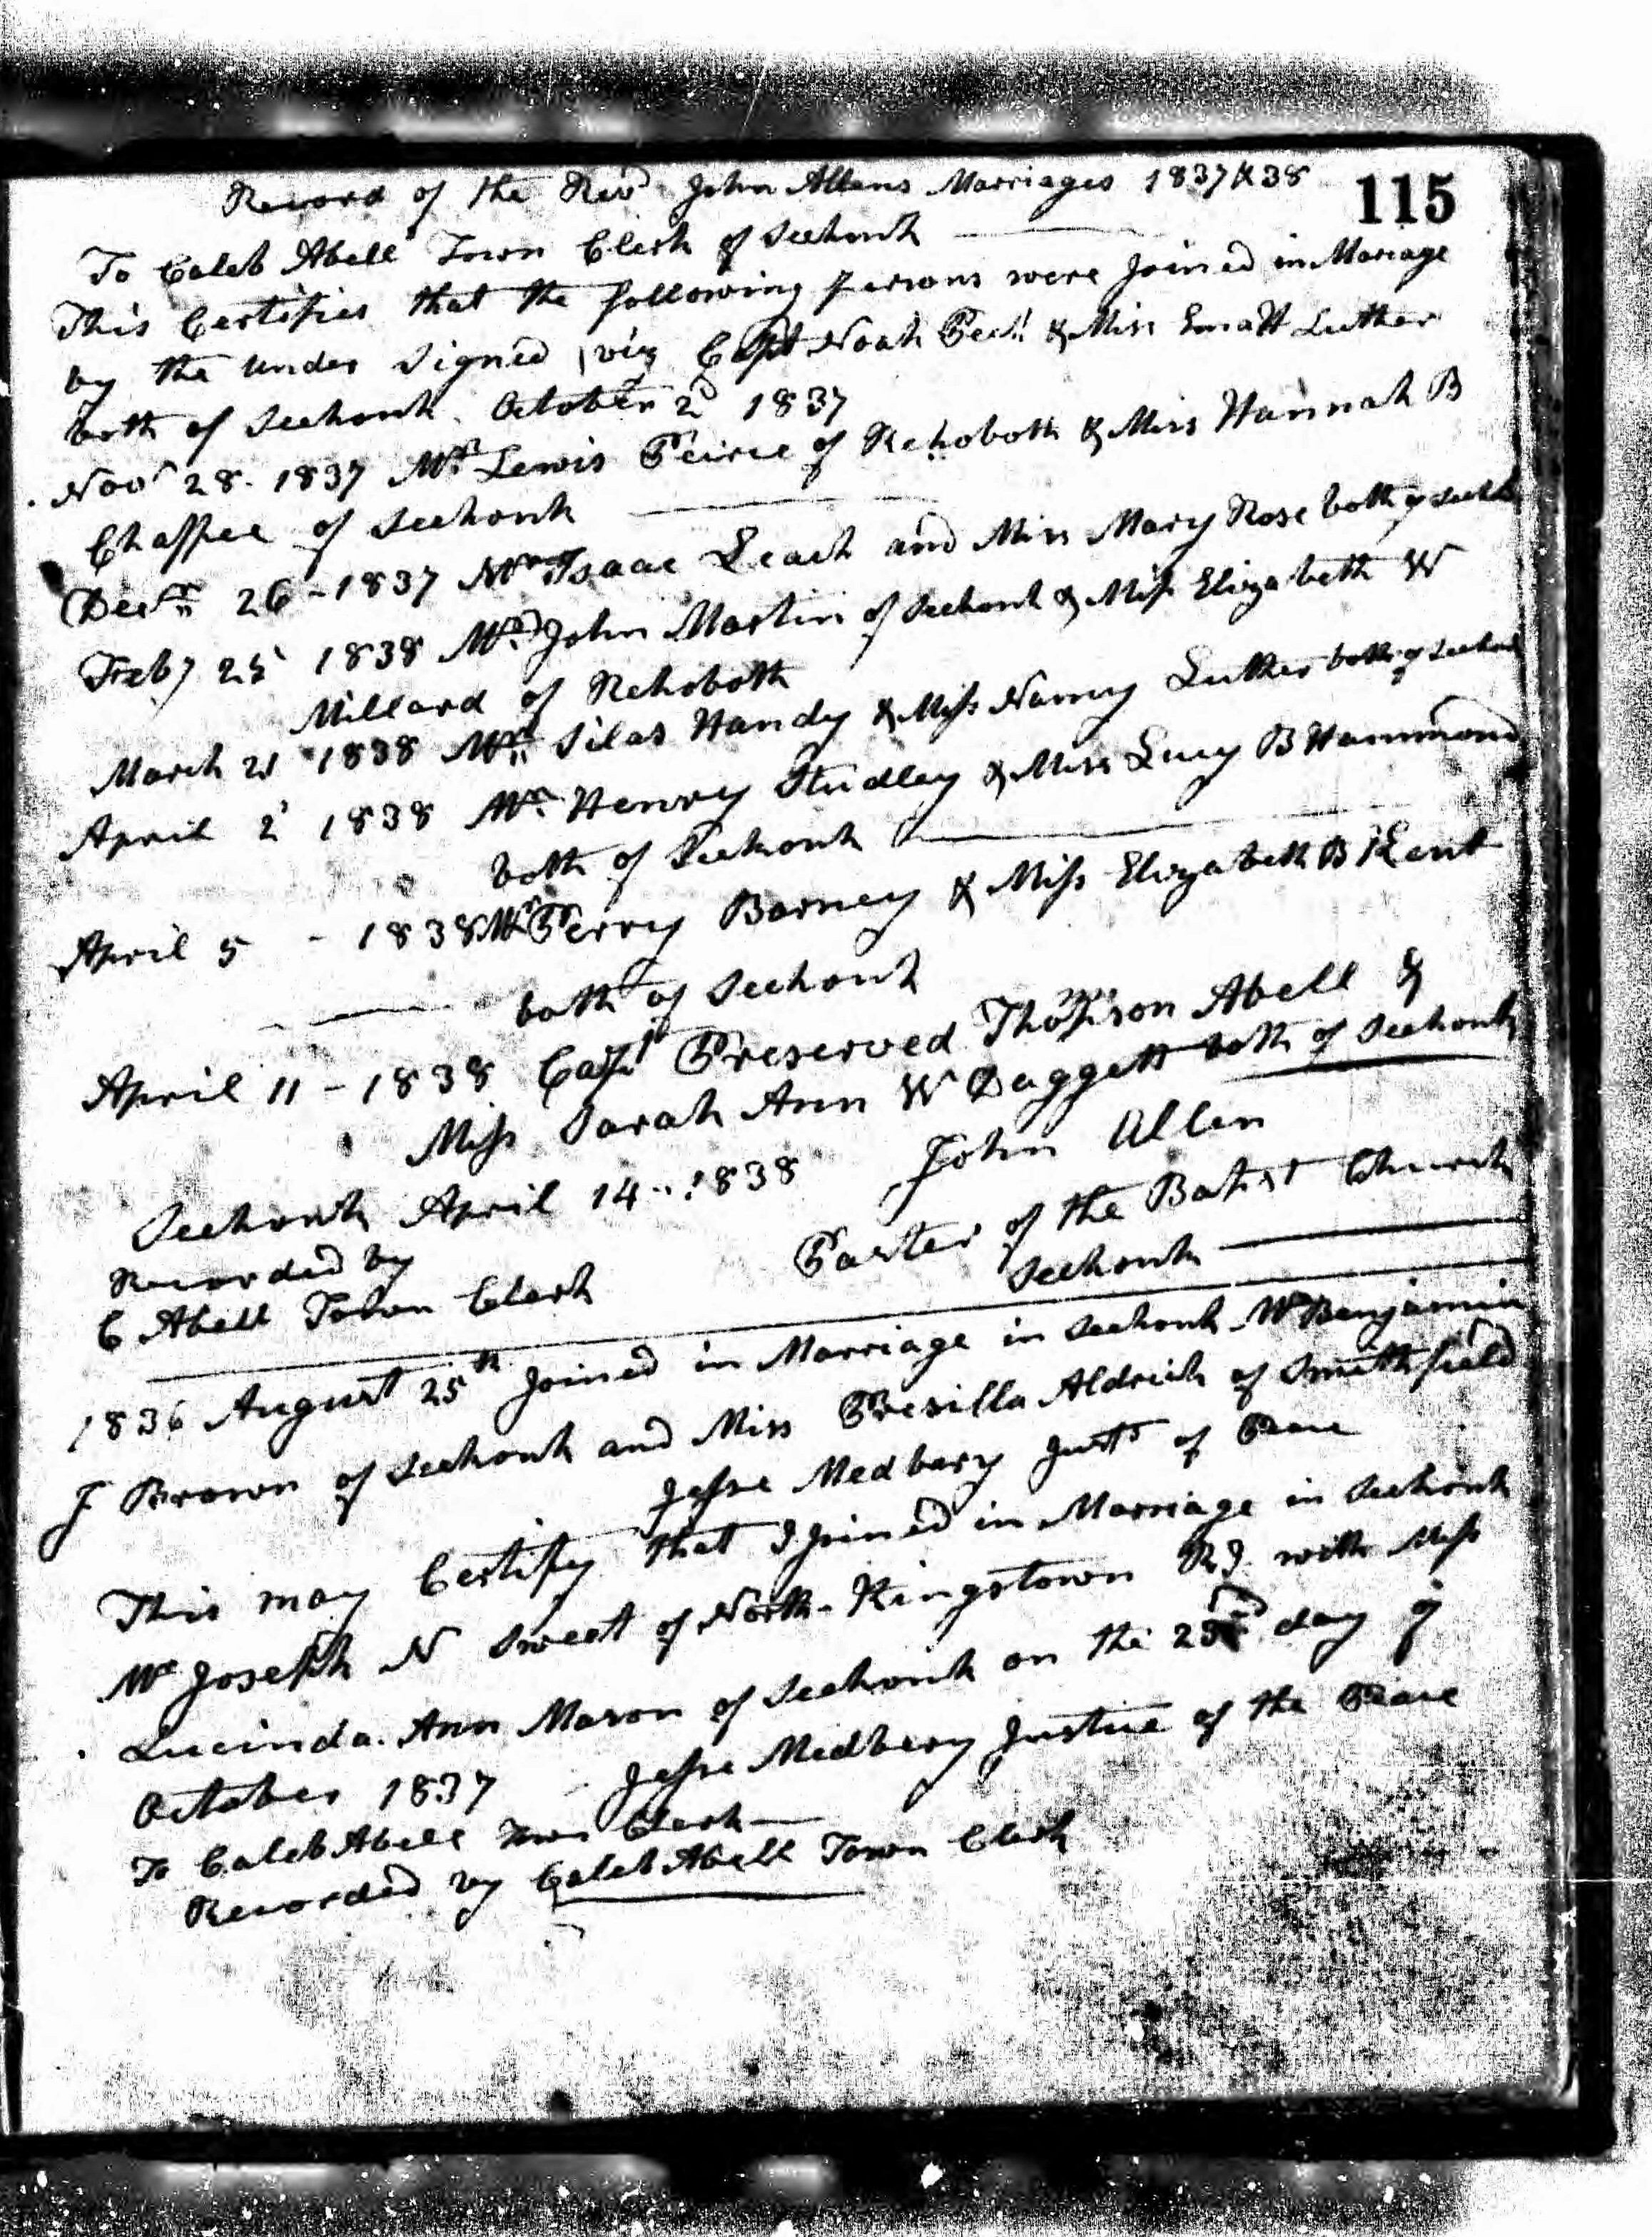 Record of the Revd John Allens Marriages 1837 & 38
115
To Caleb Abell Town Clerk of Seekonk
This Certifies that the following persons were Joined in Mariage
by the under Signed viz Capt Noah Peck & Miss Luther
both of Seekonk. October 2d 1837
Novr 28. 1837 Mr Lewis Peirce of Rehoboth & Miss Hannah B
Chaffee of Seekonk
Decr 26 - 1837 Mr Isaac Leach and Miss Mary Rose both of
Feby 25 1838 Mr John Martin of Seekonk & Miss Elizabeth W
Millard of Rehoboth
March 21 1838 Mr Silas Handy & Miss Nancy Luther both of
April 2 1838 Mr Henry Studley & Miss Lucy B Hammond
both of Seekonk
April 5 - 1838 Mr Perry Barney & Miss Elizabeth B Kent
both of Seekonk
April 11 - 1838 Capt Preserved Abell &
Miss Sarah Ann W Daggett both of Seekonk
Seekonk April 14 - 1838 John Allen
Recorded by Paster of the Batist Church
C Abell Town Clerk Seekonk
1836 August 25th Joined in Marriage in Seekonk Mr Benjamin
J Brown of Seekonk and Miss Presilla Aldrich of Smithfield
Jesse Medbary Justs of Peace
This may Certify that I Joined in Marriage in Seekonk
Mr Joseph N Sweet of North-Kingstown RI. with Miss
Lucinda Ann Mason of Seekonk on the day of
October 1837 Jesse Medbery Justice of the Peace
To Caleb Abell Town Clerk
Recorded by Caleb Abell Town Clerk